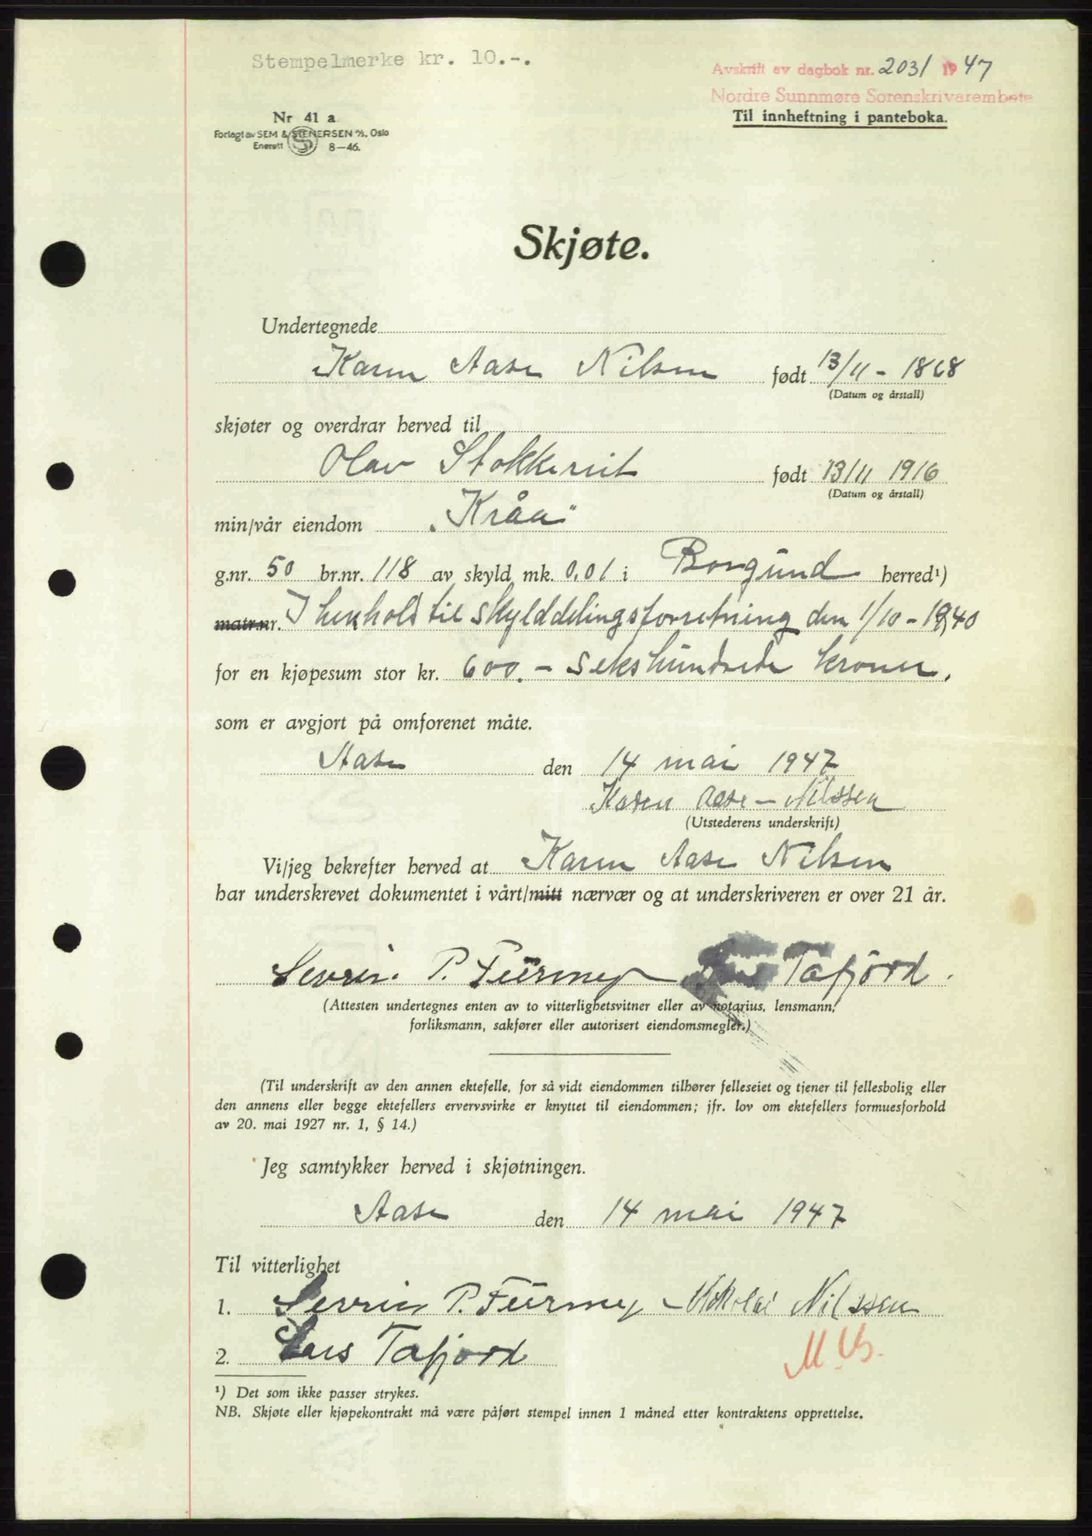 Stempelmerke kr. 10.-.
Avskrift av dagbok nr. 2031 1947
Nordre Sunnmøre Sorenskrivarembete
Til innheftning i panteboka.
Nr 41 a
Forlagt av SEM & STENERSEN A/S, Oslo
Enerett S 8-46.
Skjøte.
Undertegnede
Karen Aase Nilsen født 13/11 - 1868
(Datum og årstall)
skjøter og overdrar herved til
Olav født 13/11 1916
(Datum og årstall)
min/vår eiendom „Kråa"
g.nr. 50 br.nr. 118 av skyld mk. 0,01 i Borgund herred¹)
matr.nr. I henhold til skylddelingsforretning den 1/10 - 1940
for en kjøpesum stor kr. 600.- sekshundrede kroner.
som er avgjort på omforenet måte.
Aase den 14 mai 1947
Karen Aase - Nilssen
(Utstederens underskrift)
Vi/jeg bekrefter herved at Karen Aase Nilsen
har underskrevet dokumentet i vårt/mitt nærvær og at underskriveren er over 21 år.
Sevrin P. Furmyr Tafjord.
(Attesten undertegnes enten av to vitterlighetsvitner eller av notarius, lensmann,
forliksmann, sakfører eller autorisert eiendomsmegler.)
(Til underskrift av den annen ektefelle, for så vidt eiendommen tilhører felleseiet og tjener til fellesbolig eller
den annens eller begge ektefellers ervervsvirke er knyttet til eiendommen; jfr. lov om ektefellers formuesforhold
av 20. mai 1927 nr. 1, § 14.)
Jeg samtykker herved i skjøtningen.
Aase den 14 mai 1947
Til vitterlighet
1. Sevrin P. Furmyr Nikolai Nilssen
2. Tafjord
¹) Det som ikke passer strykes.
NB. Skjøte eller kjøpekontrakt må være påført stempel innen 1 måned etter kontraktens opprettelse.